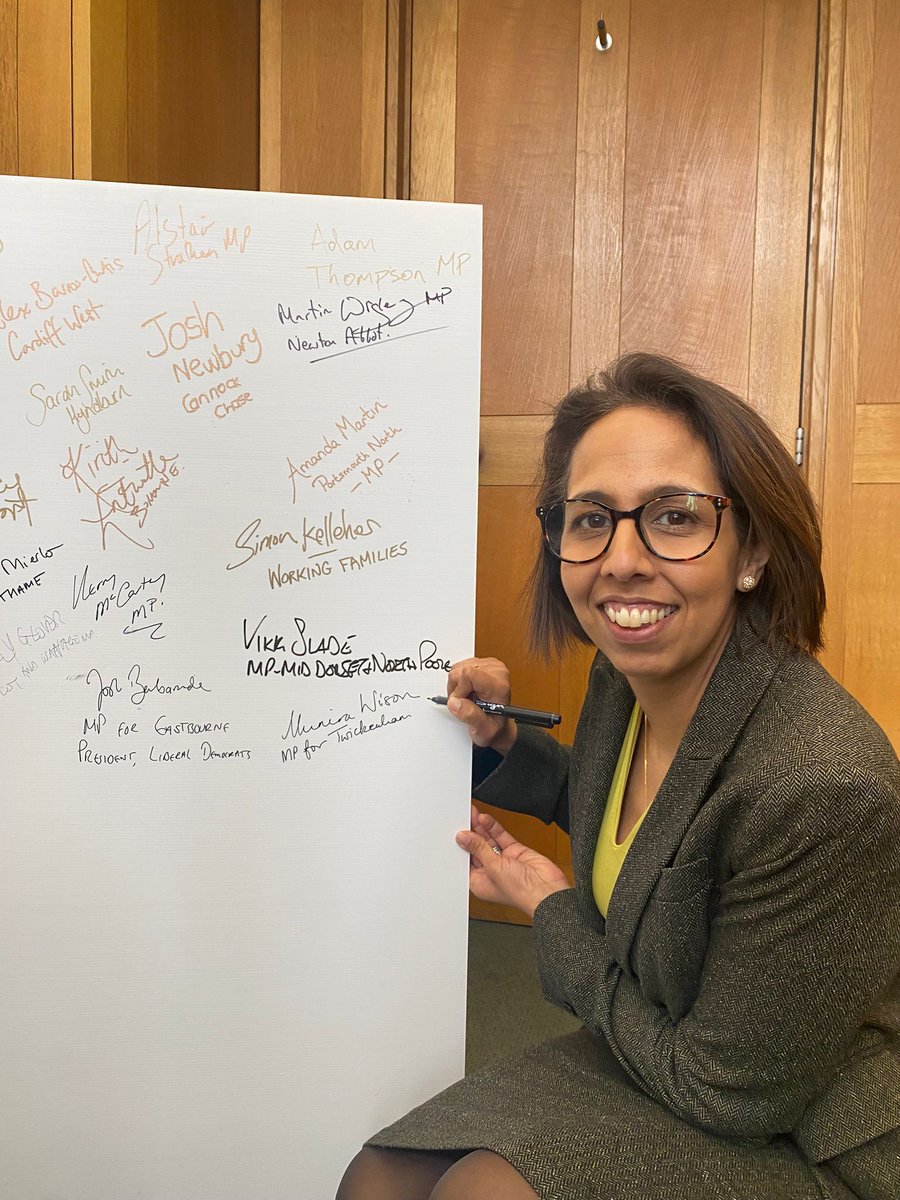 Alistair
Strathern MP
Adam
Thompson MP
Alex Barros-Curtis
Cardiff West
Martin Wrigley MP
Newton Abbot.
Josh
Newbury
Cannock
Chase
Sarah Smith
Hyndburn
Amanda Martin
Portsmouth North
- MP -
Kirith
Entwistle
Bolton NE.
Simon Kelleher
WORKING FAMILIES
Mierlo
THAME
Kerry
McCarthy
MP.
GLOVER
COT AND WANTAGE MP.
VIKKI SLADE
MP - MID DORSET & NORTH POOLE
Josh Babarinde
MP FOR EASTBOURNE
PRESIDENT, LIBERAL DEMOCRATS
Munira Wilson
MP for Twickenham